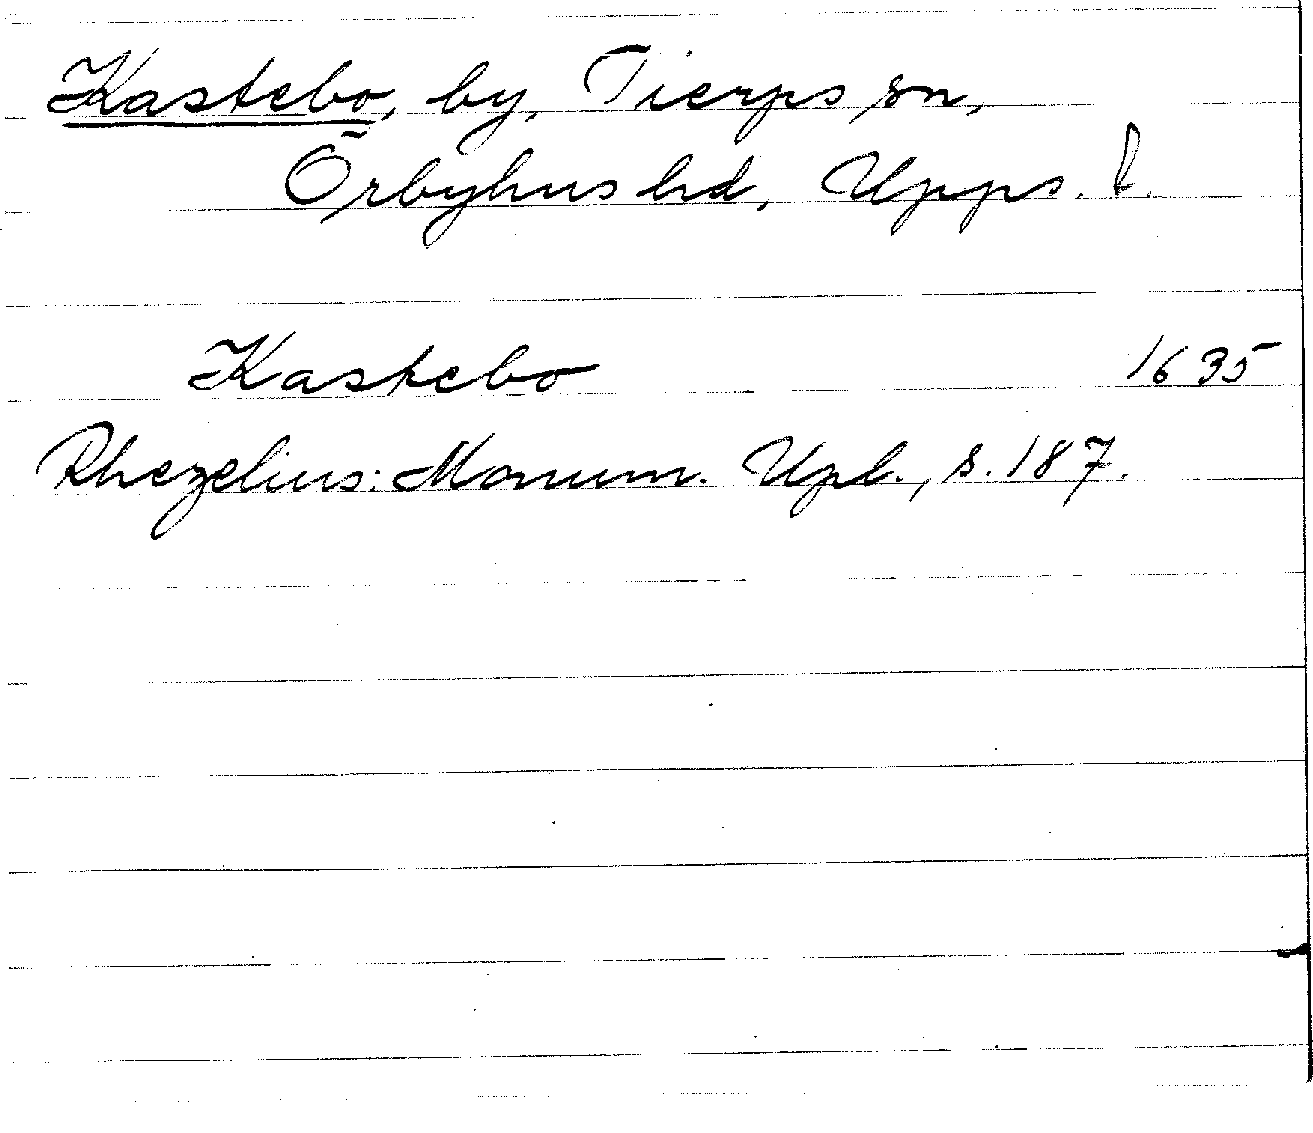 Kastebo, by, Tierps sn,
Örbyhus hd, Upps. l.
Kastebo 1635
Rhezelius: Monum. Upl., s. 187.